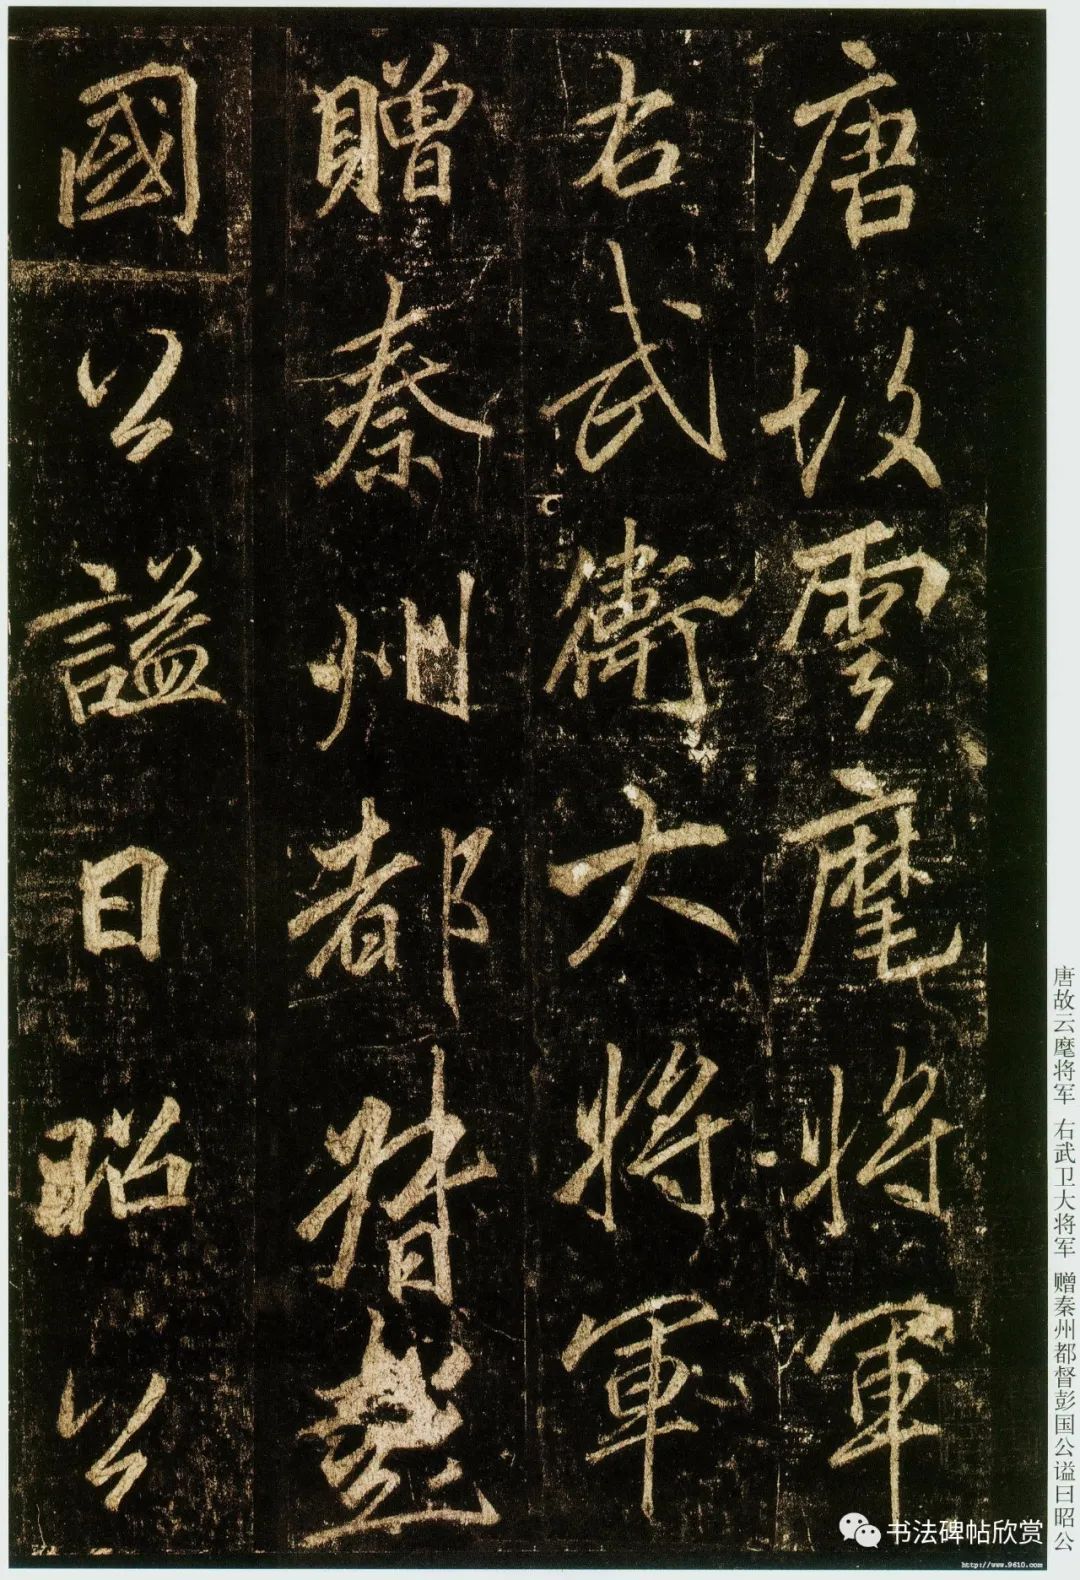 唐故雲麾將軍
右武衛大將軍
贈秦州都督彭
國公謚曰昭公
唐故云麾将军 右武卫大将军 赠秦州都督彭国公谥曰昭公
书法碑帖欣赏
http://www.9610.com